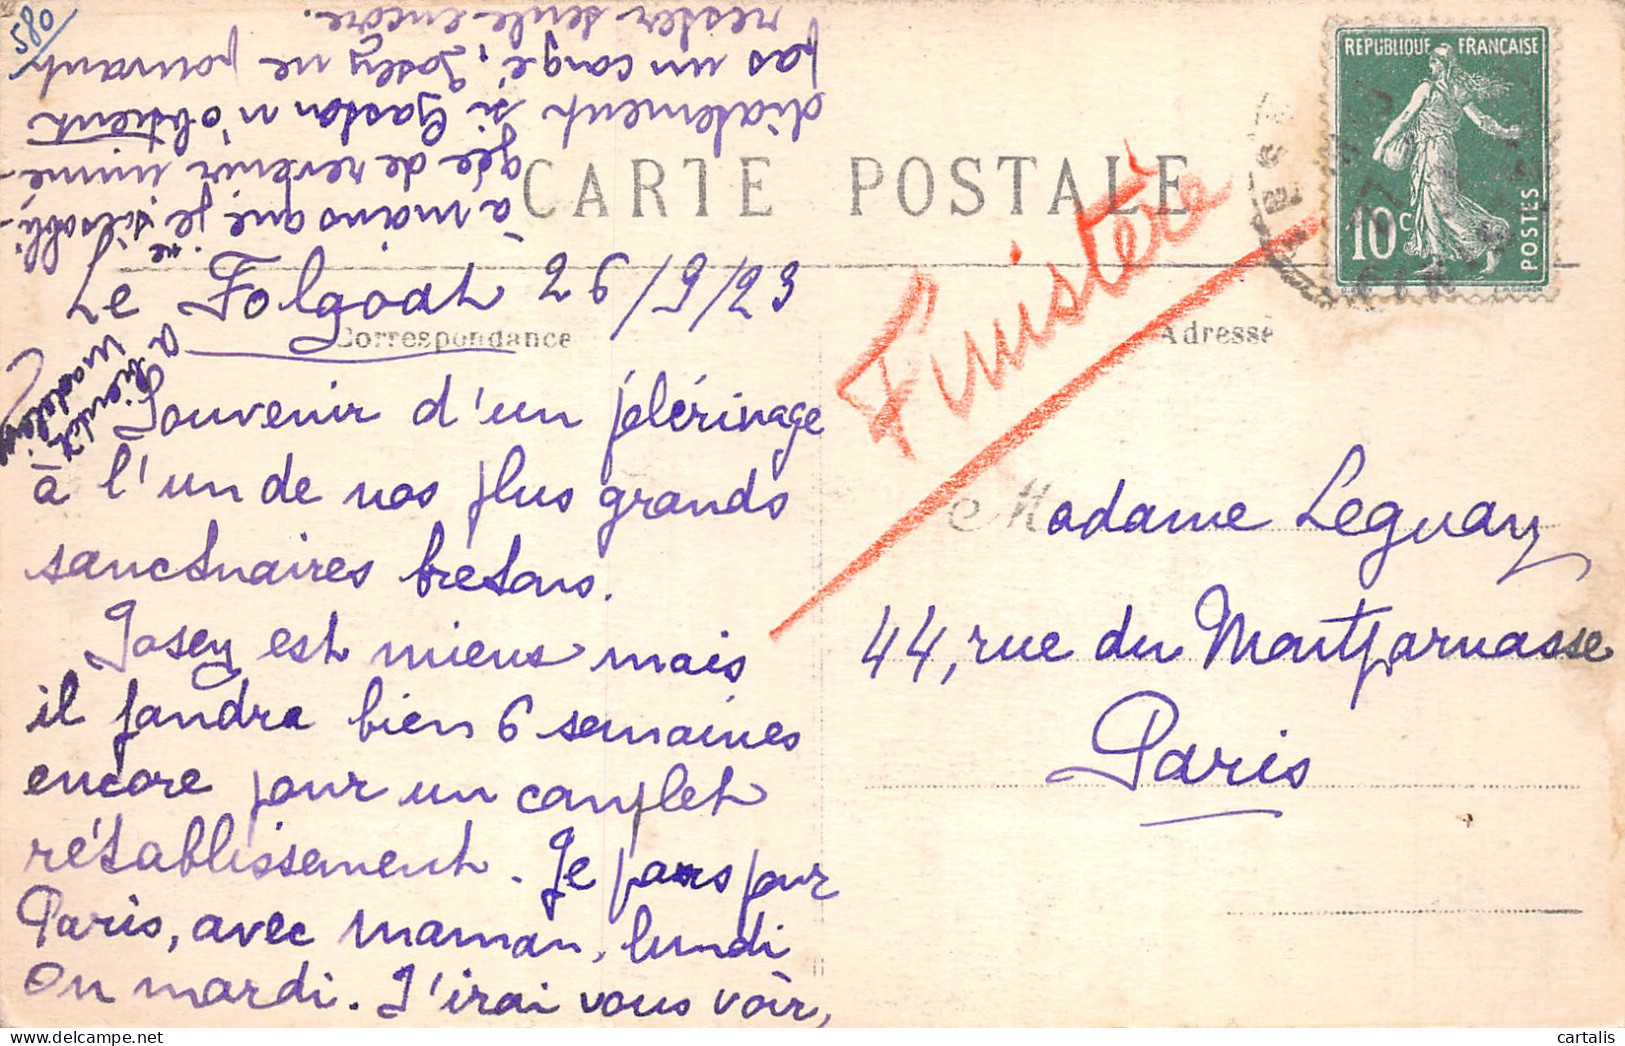 580
CARTE POSTALE
REPUBLIQUE FRANÇAISE
10c
POSTES
Correspondance
Adresse
Finistère
Le Folgoat 26/9/23
Souvenir d'un pélérinage
à l'un de nos plus grands
sanctuaires bretons.
Josey est mieux mais
il faudra bien 6 semaines
encore pour un complet
rétablissement. Je pars pour
Paris, avec maman, lundi
ou mardi. J'irai vous voir,
à moins que je ne sois obli-
gée de revenir immé-
diatement si Gaston n'obtient
pas un congé, Josey ne pouvant
rester seule encore.
A bientôt
Madeleine
Madame Leguay
44, rue du Montparnasse
Paris
cartalis